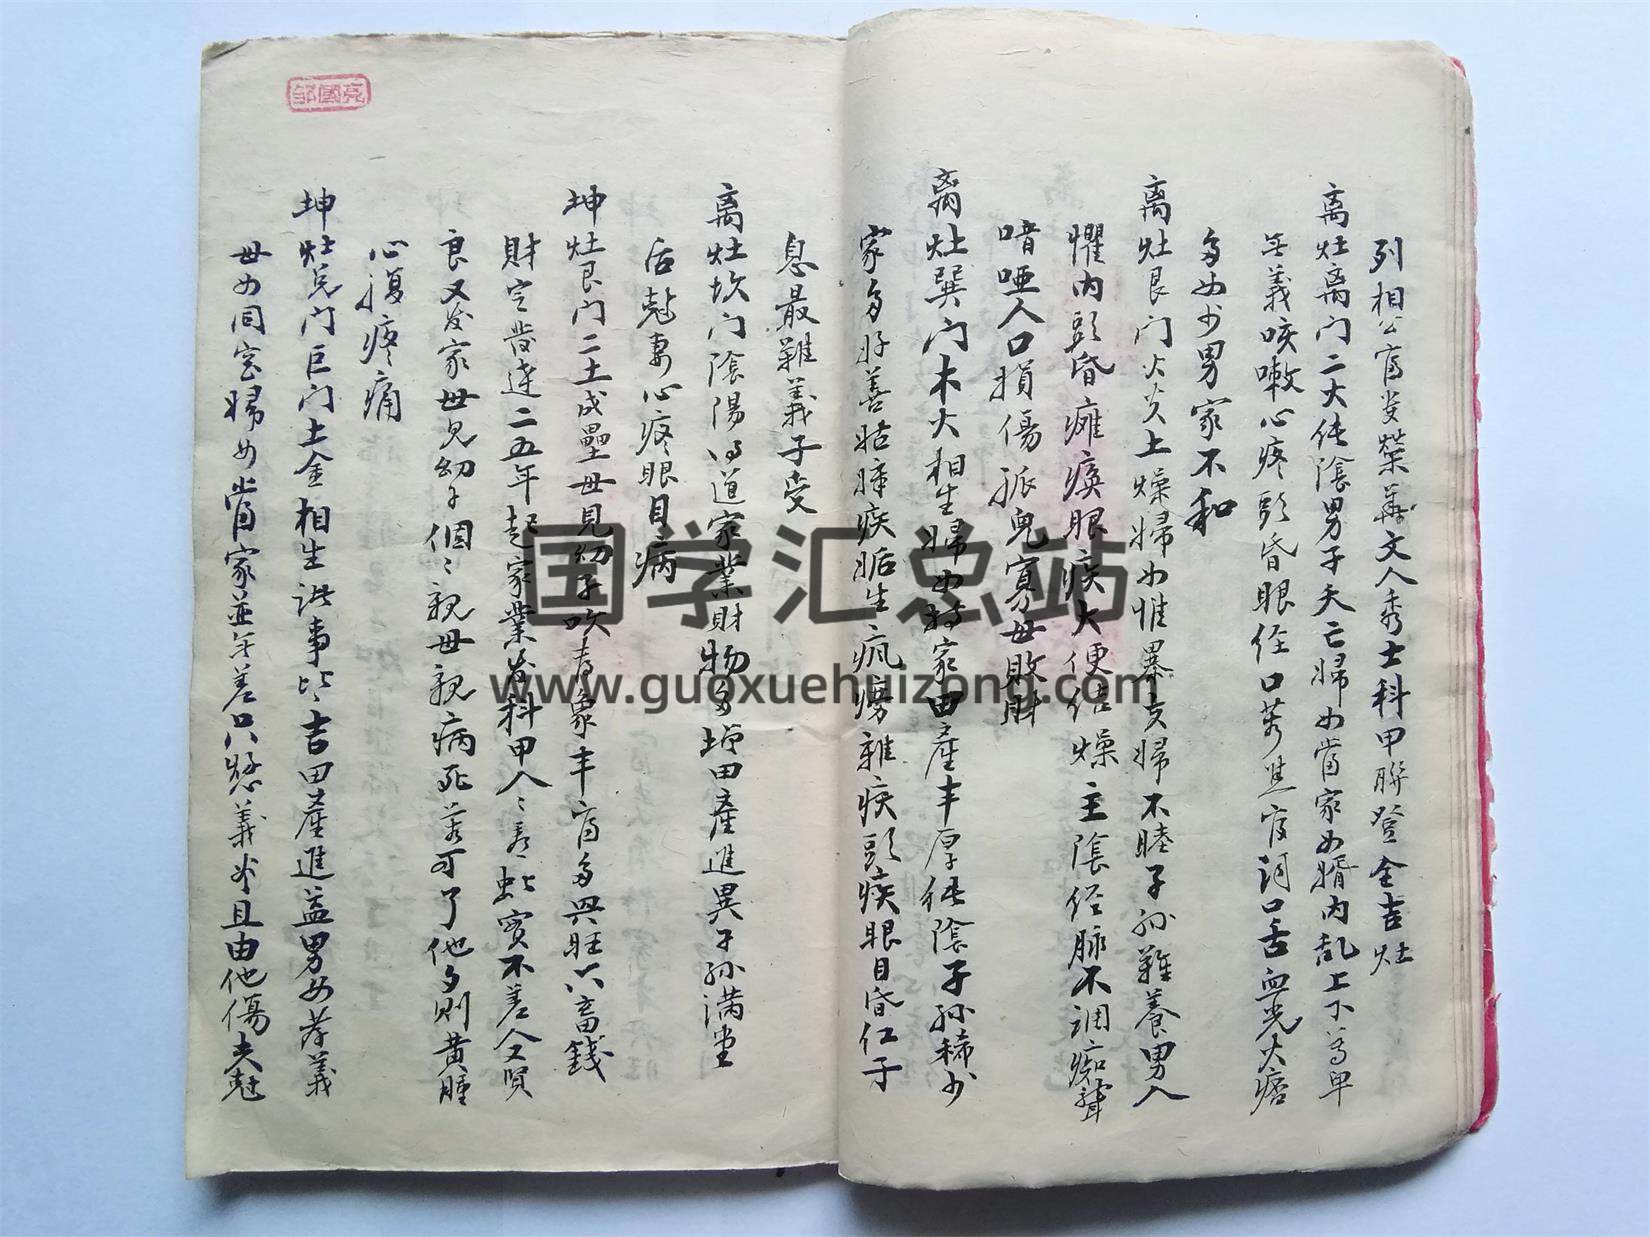 列相公富发榮華文人秀士科甲聯登全吉灶
离灶离门二火純陰男子夭亡婦女當家女婿内乱上下尊卑
無義咳嗽心疼頭昏眼 口苦 口舌血光火
多女少男家不和
离灶艮门火炎土燥婦女惟暴夫婦不睦子孙難養男人
懼内頭昏癱瘓眼疾大便结燥主陰经脉不调痴聋
喑啞人口損傷孤兒寡母敗財
离灶巽门木火相生婦女持家田產丰厚純陰子孙稀少
家多好善姑 疾 生疯痨雜疾頭疾眼目昏仁子
息最難義子受
离灶坎门陰陽 道家業財物多增田產進異子孙满堂
后尅妻心疼眼目病
坤灶艮门二土成壘母見幼子 為象丰富多興旺六畜錢
財 發達二五年起家業 科甲人 虫 實不差 人賢
良又发家母见幼子個々親母親病死 可了他 則黄腫
心腹疼痛
坤灶兑门巨门土金相生諸事皆吉田產進益男女孝義
母女同 婦女當家並無差只 義 且由他傷夫尅
邹國亮
国学汇总站
www.guoxuehuizong.com